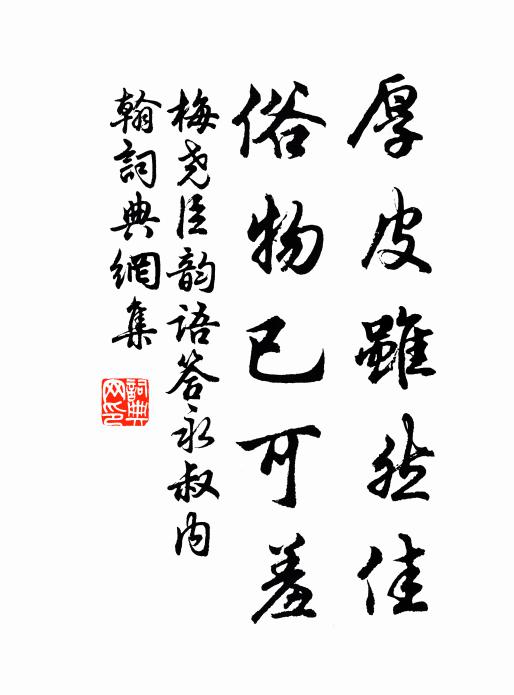 厚皮雖然佳
俗物已可羞
梅堯臣韵語答永叔內
翰詞典網集
詞典
网印